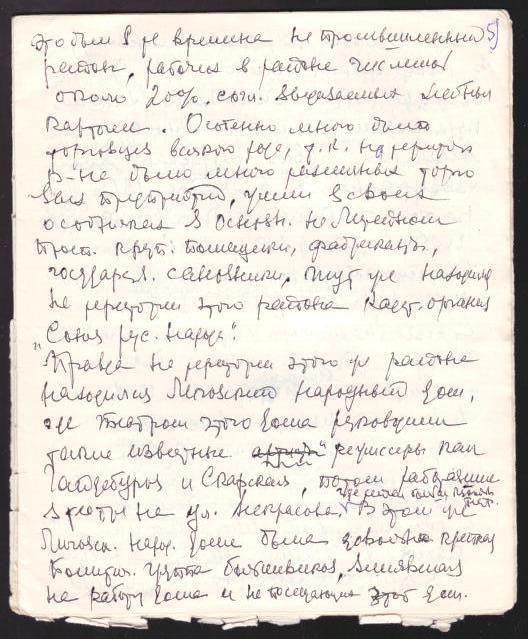 Это был в те времена не промышленный 5)
район, рабочих в районе числилось
около 20%, согл. выдаваемых хлебных
карточек. Особенно много было
торговцев всякого рода, т.к. на территории
р-на было много различных торго
вых предприятий, жили в своих
особняках в основн. на Литейном
просп. круп. помещики, фабриканты,
государств. сановники. Тут же находился
на территории этого района кадет. организ
"Союз рус. народа".
Правда на территории этого же района
находился Лиговский народный дом,
где театром этого дома руководили
такие известные режиссеры как
Гайдебуров и Скарская, потом работавшие
в театре на ул. Некрасова. В этом же
Лиговск. народ. доме была довольно крепкая
большая группа большевиков, влиявшая
на работу дома и на посещающих этот дом.